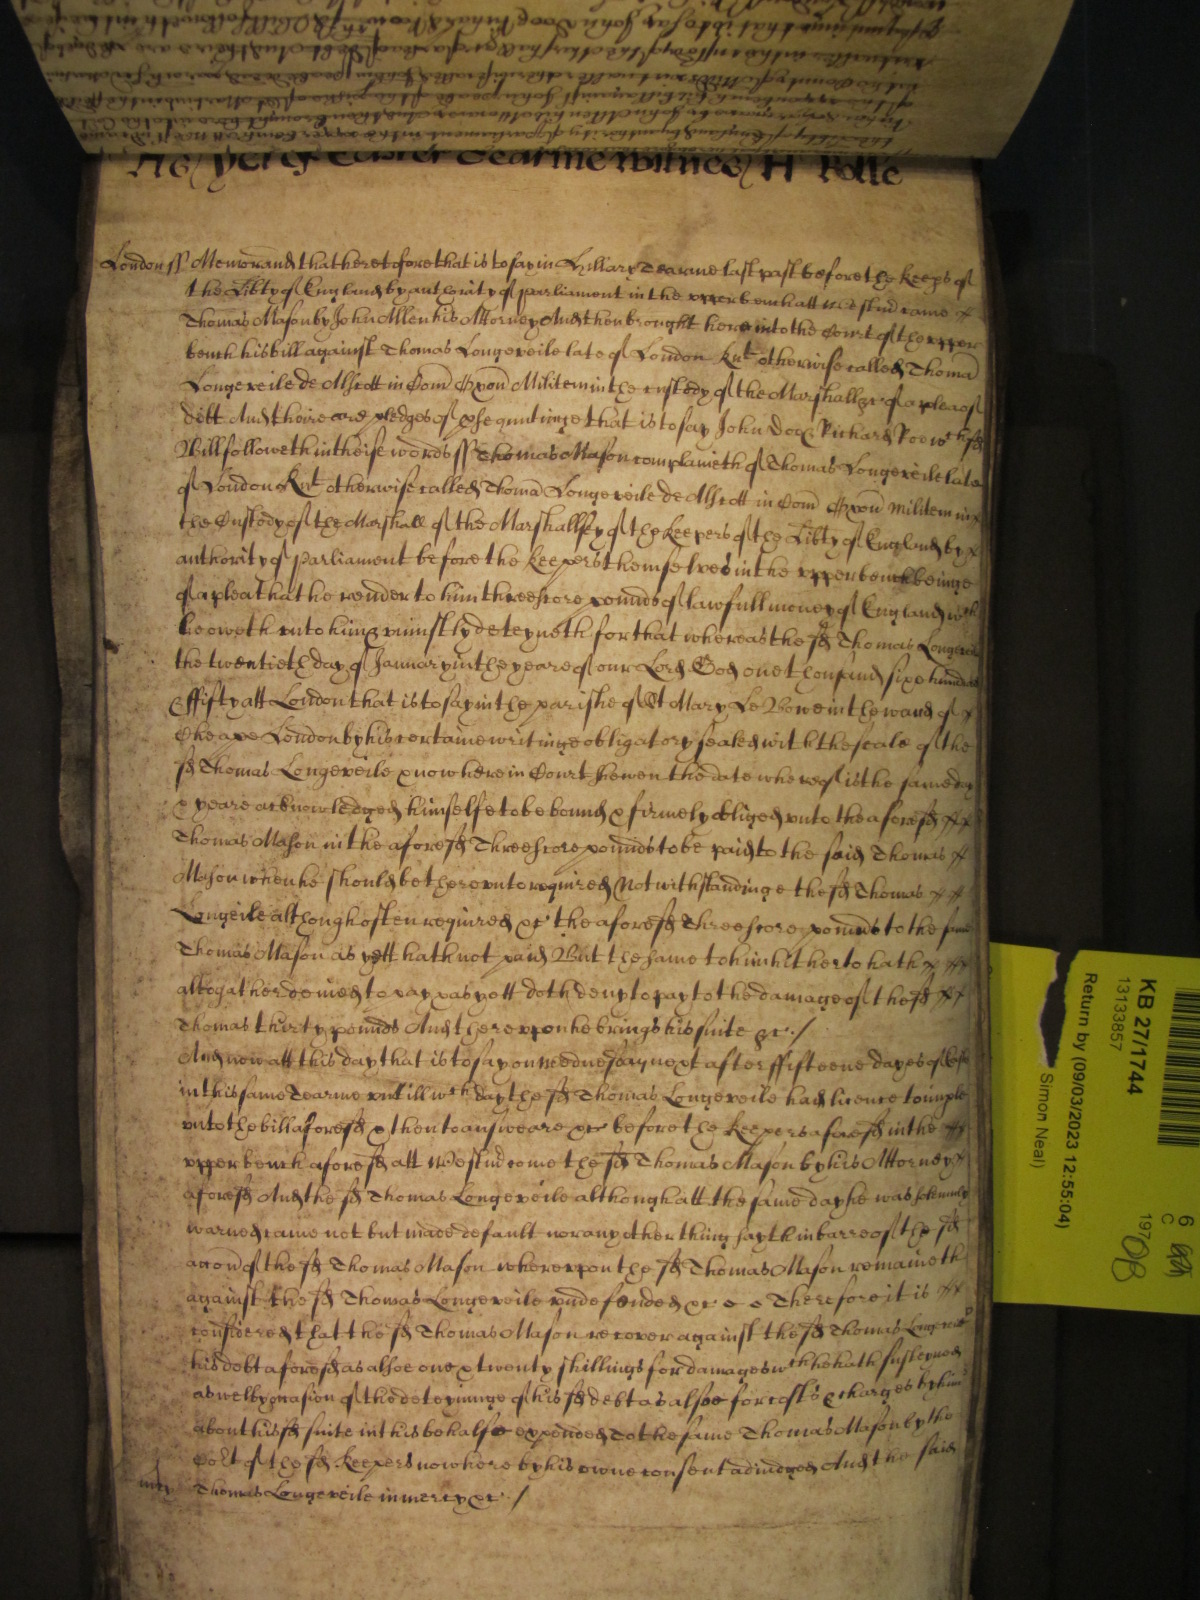 yet of Easter Tearme witnes H Rolle
London ss Memorand that heretofore that is to say in Hillary Tearme last past before the keeps of
the Libty of England by authority of parliament in the upper bench att Westm came
Thomas Mason by John Allen his Attorney And then brought here into the Court of the upper
bench his bill against Thomas Longeveile late of London Knt otherwise called Thoma
Longeveile de in Com Oxon Militem in the custody of the Marshall &c of a plea of
debt And there are pledges of psequutinge that is to say John Doe & Richard Roe wch sd
Bill followeth in theise words ss Thomas Mason complaineth of Thomas Longeveile late
of London Knt otherwise called Thoma Longeveile de in Com Oxon militem in
the Custody of the Marshall of the Marshallsy of the Keepers of the Libty of England by
authority of Parliament before the Keepers themselves in the upper bench beinge
of a plea that he render to him threescore pounds of lawfull money of England wch
he oweth unto him & uniustly deteyneth for that whereas the sd Thomas Longeveile
the twentieth day of January in the yeare of our Lord God one thousand sixe hundred
& ffifty att London that is to say in the parishe of St Mary Le Bowe in the ward of
Cheape London by his certaine writinge obligatory sealed with the seale of the
sd Thomas Longeveile & now here in Court shewen the date whereof is the same day
& yeare acknowledged himselfe to be bound & firmely obliged unto the aforesd
Thomas Mason in the aforesd Threescore pounds to be paid to the said Thomas
Mason when he should be thereunto required Notwithstandinge the sd Thomas
Longeile although often required &c the aforesd Threescore pounds to the said
Thomas Mason as yett hath not paid But the same to him hitherto hath
altogather denied to pay & as yett doth deny to pay to the damage of the sd
Thomas thirty pounds And thereuppon he brings his suite &c /
And now att this day that is to say on wednesday next after ffifteene dayes of
in this same Tearme untill wch day the sd Thomas Longeveile had licence to imple
unto the bill aforesd & then to answeare &c before the Keepers aforesd in the
upper bench aforesd att Westm come the sd Thomas Mason by his Attorney
aforesd And the sd Thomas Longeveile although att the same day he was solemnly
warned came not but made default nor any other thing sayth in barre of the sd
accon of the sd Thomas Mason whereuppon the sd Thomas Mason remaineth
against the sd Thomas Longeveile undefended &c Therefore it is
considered that the sd Thomas Mason recover against the sd Thomas Longeveile
his debt aforesd as alsoe one & twenty shillings for damages wch he hath susteyned
as wel by occasion of the deteyninge of his sd debt as alsoe for costs & charges by him
about his sd suite in this behalfe expended To the same Thomas Mason by the
Cort of the sd Keepers now here by his owne consent adiudged And the said
mcy Thomas Longeveile in mercy &c /
KB 27/1744
13133857
Return by (09/03/2023 12:55:04)
Simon Neal)
6
C
197